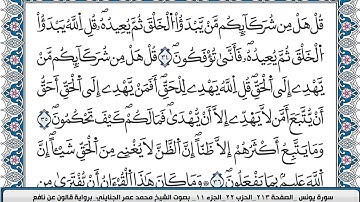 قُلْ هَلْ مِن شُرَكَآئِكُم مَّنْ يَّبْدَؤُاْ الْخَلْقَ ثُمَّ يُعِيدُهُۥ قُلِ اِللَّهُ يَبْدَؤُاْ
اُلْخَلْقَ ثُمَّ يُعِيدُهُۥ فَأَنّٰى تُوفَكُونَ ٣٤ قُلْ هَلْ مِن شُرَكَآئِكُم مَّنْ
يَّهْدِے إِلَى اَلْحَقِّ قُلِ اِللَّهُ يَهْدِے لِلْحَقِّ أَفَمَنْ يَّهْدِے إِلَى اَلْحَقِّ أَحَقُّ
أَنْ يُّتَّبَعَ أَمَّن لَّا يَهْدِّے إِلَّا أَنْ يُّهْدٰى فَمَا لَكُمْ كَيْفَ تَحْكُمُونَ ٣٥
وَمَا يَتَّبِعُ أَكْثَرُهُمُ إِلَّا ظَنّاً إِنَّ اَلظَّنَّ لَا يُغْنِے مِنَ اَلْحَقِّ شَيْـٔاً إِنَّ
اَللَّهَ عَلِيمُۢ بِمَا يَفْعَلُونَ ٣٦ وَمَا كَانَ هَٰذَا اَلْقُرْءَانُ أَنْ يُّفْتَر۪ىٰ مِن
سورة يونس _ الصفحة ٢١٣ _ الحزب ٢٢ _ الجزء ١١ _ بصوت الشيخ محمد عمر الجنايني _ برواية قالون عن نافع